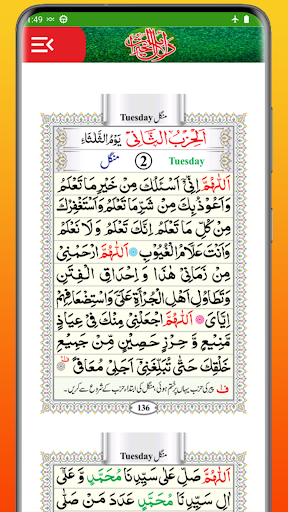 1:49
دلائل الخیرات
منگل Tuesday
اَلْحِزْبُ الثَّانِیْ یَوْمُ الثُّلَثَاءِ
منگل 2 Tuesday
اَللّٰهُمَّ اِنِّیْۤ اَسْئَلُكَ مِنْ خَیْرِ مَا تَعْلَمُ
وَاَعُوْذُبِكَ مِنْ شَرِّ مَا تَعْلَمُ وَاَسْتَغْفِرُكَ
مِنْ كُلِّ مَا تَعْلَمُ اِنَّكَ تَعْلَمُ وَلَا نَعْلَمُ
وَاَنْتَ عَلَّامُ الْغُیُوْبِ اَللّٰهُمَّ ارْحَمْنِیْ
مِنْ زَمَانِیْ هٰذَا وَ اِحْدَاقِ الْفِتَنِ
وَتَطَاوُلِ اَهْلِ الْجُرْاَةِ عَلَیَّ وَاسْتِضْعَافِهِمْ
اِیَّایَ اَللّٰهُمَّ اجْعَلْنِیْ مِنْكَ فِیْ عِیَاذٍ
مَنِیْعٍ وَّ حِرْزٍ حَصِیْنٍ مِنْ جَمِیْعِ
خَلْقِكَ حَتّٰی تُبَلِّغَنِیْ اَجَلِیْ مُعَافًی
ف پیر کی حزب یہاں پر ختم ہوئی، منگل کی ابتداء حزب کے شروع سے کریں۔
136
منگل Tuesday
اَللّٰهُمَّ صَلِّ عَلٰی سَیِّدِنَا مُحَمَّدٍ وَّ عَلٰۤی
اٰلِ سَیِّدِنَا مُحَمَّدٍ عَدَدَ مَنْ صَلّٰی